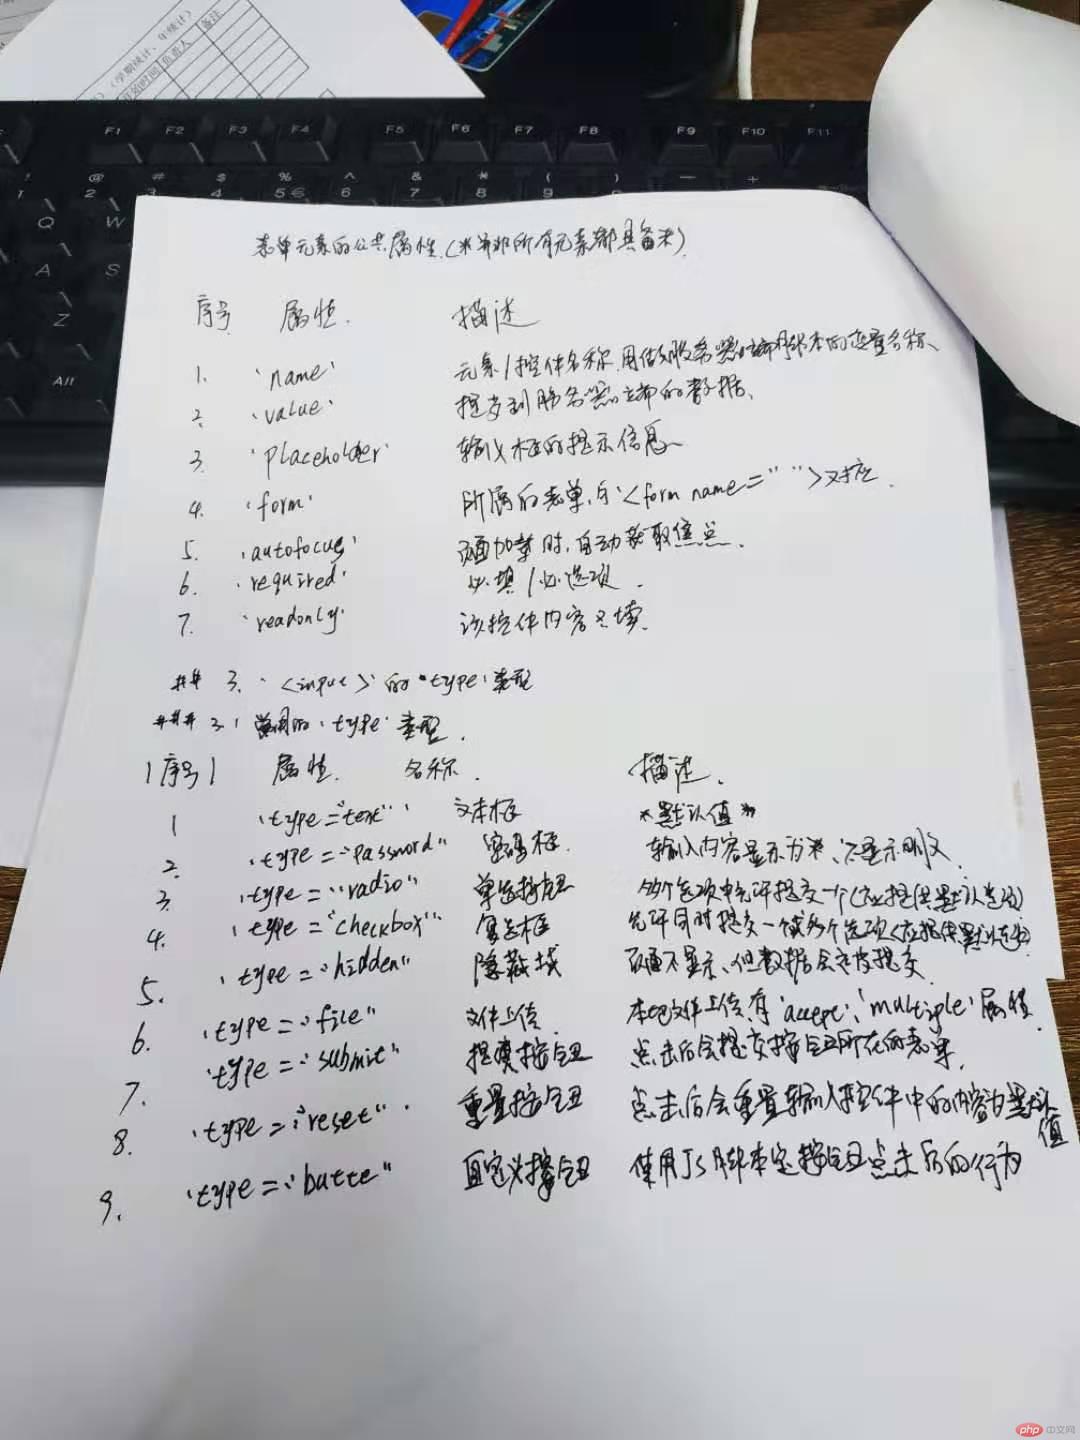 (学期统计、年统计)
时间 负责人 备注
F1 F2 F3 F4 F5 F6 F7 F8 F9 F10 F11
! @ # $ % ^ & * ( ) — +
1 2 3 4 5 € 6 7 8 9
Q W
A S
Z
Alt
表单元素的公共属性(并非所有元素都具备)
序号 属性. 描述
1. 'name' 元素/控件名称,用做服务器端脚本的变量名称、
2. 'value' 提交到服务器端的数据、
3. 'placeholder' 输入框的提示信息
4. 'form' 所属的表单,与<form name=" ">对应.
5. 'autofocus' 页面加载时,自动获取焦点、
6. 'required' 必填/必选项.
7. 'readonly' 该控件内容只读
## 3. '<input>' 的 'type' 类型
### 3.1 常用的 'type' 类型.
|序号| 属性. 名称. 描述.
1 'type="text"' 文本框 *默认值*
2. 'type="password" 密码框. 输入内容显示为*、不显示明文.
3. 'type="radio" 单选按钮 多个选项中允许提交一个(应提供默认选项)
4. 'type="checkbox" 复选框 允许同时提交一或多个选项(应提供默认选项)
5. 'type="hidden" 隐藏域 页面不显示、但数据会被提交
6. 'type="file" 文件上传. 本地文件上传,有'accept','multiple'属性
7. 'type="submit" 提交按钮 点击后会提交按钮所在的表单.
8. 'type="reset". 重置按钮 点击后会重置输入控件中的内容为默认值
9. 'type="butte" 自定义按钮 使用JS脚本定按钮点击后的行为
php 中文网